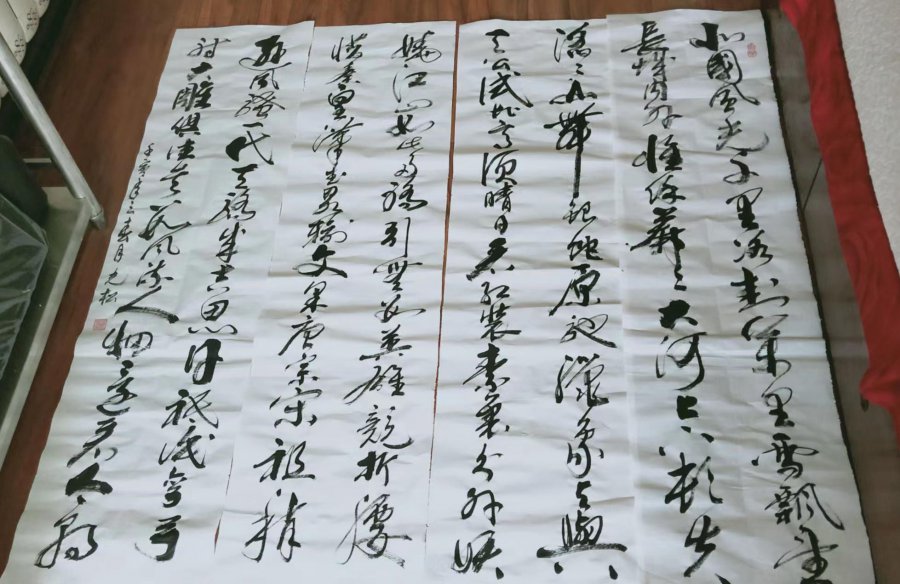 北國風光千里冰封萬里雪飄望
長城內外惟餘莽々大河上下頓失
滔々山舞銀蛇原馳蠟象欲與
天公試比高須晴日看紅裝素裹分外妖
嬈江山如此多嬌引無數英雄競折腰
惜秦皇漢武略輸文采唐宗宋祖稍
遜風騷一代天驕成吉思汗祗識彎弓
射大雕俱往矣數風流人物還看今朝
壬寅年春月光松